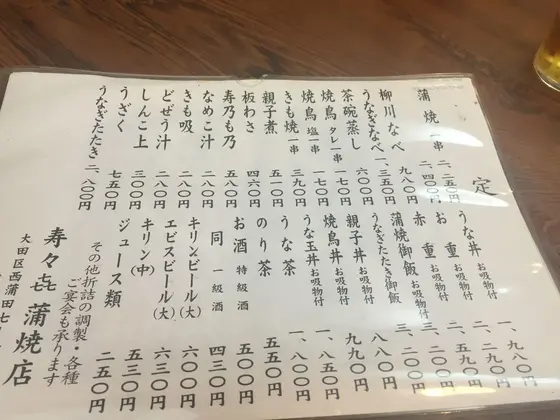 定
蒲焼 一串 二、二五〇円
二、四〇〇円
柳川なべ 九八〇円
うなぎなべ 一、三五〇円
茶碗蒸し 六〇〇円
焼鳥 タレ一串 一七〇円
焼鳥 塩一串 一七〇円
きも焼 一串 三九〇円
親子煮 五一〇円
板わさ 四六〇円
寿乃も乃 五八〇円
なめこ汁 二八〇円
どぜう汁 二八〇円
きも吸 二八〇円
しんこ上 三〇〇円
うざく 七五〇円
うなぎたたき 二、八〇〇円
うな丼 お吸物付
お重 お吸物付
赤重 お吸物付
蒲焼御飯 お吸物付
うなぎたたき御飯
親子丼 お吸物付
焼鳥丼 お吸物付
うな玉丼 お吸物付
うな茶
のり茶 五五〇円
お酒 特級酒 五〇〇円
同 一級酒 四三〇円
キリンビール(大) 六三〇円
エビスビール(大) 六三〇円
キリン(中) 五三〇円
ジュース類 二五〇円
その他折詰の調製・各種
ご宴会も承ります
寿々㐂 蒲焼店
大田区西蒲田七